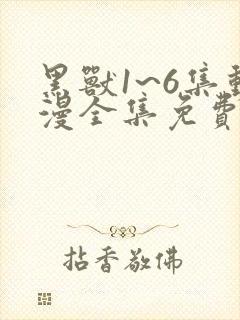 黑獸1~6集動
漫全集免費
拈香敬佛